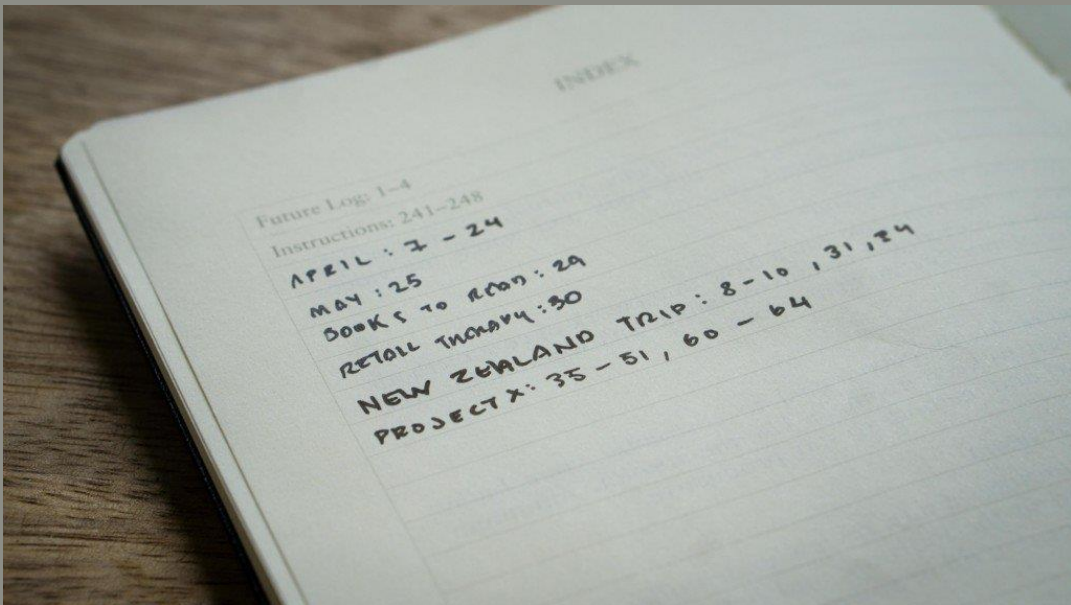 INDEX
Future Log: 1–4
Instructions: 241–248
APRIL : 7 - 24
MAY : 25
BOOKS TO READ : 29
RETAIL THERAPY : 30
NEW ZEALAND TRIP : 8 - 10 , 31 , 34
PROJECT X : 35 - 51 , 60 - 64